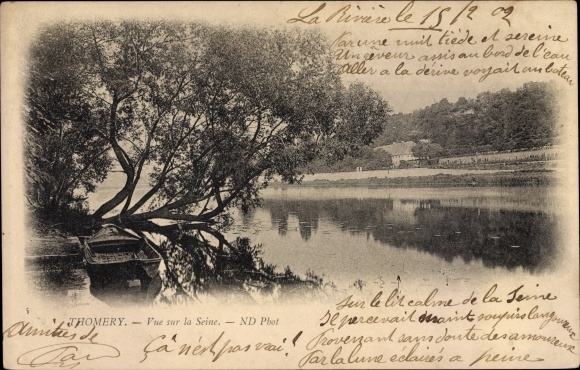 La Rivière le 15/2 02
Par une nuit tiède et sereine
Un rêveur assis au bord de l'eau
Aller a la dérive voyait un bateau
THOMERY. — Vue sur la Seine. — ND Phot
Sur le lit calme de la Seine
Se percevait maint soupirs langoureux
Provenant sans doute des amoureux
Par la lune éclairés a peine
Amitiés de
Ça n'est pas vai!